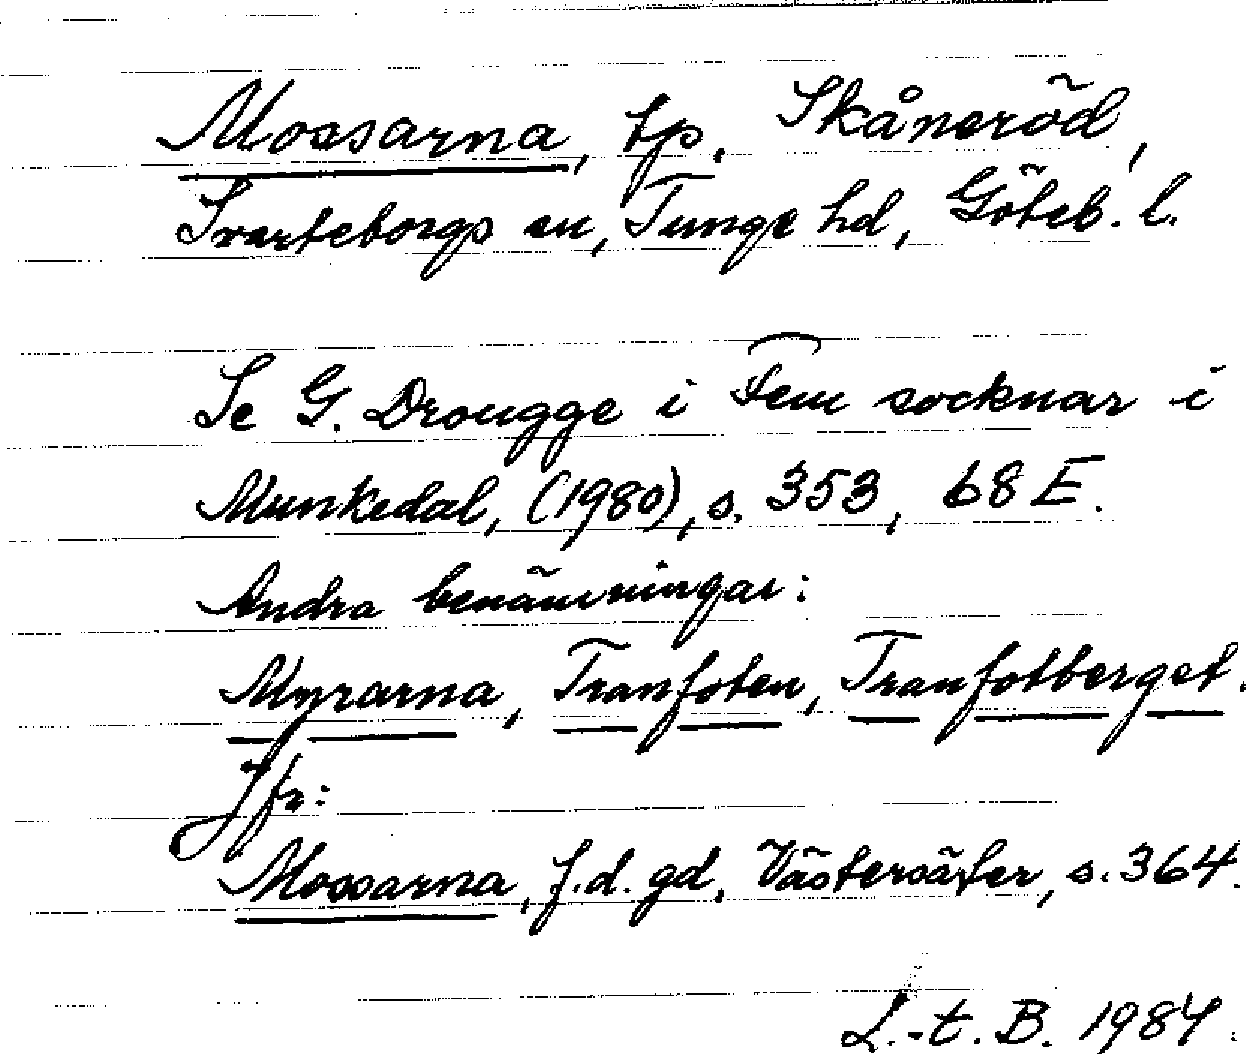 Mossarna, tp. Skåneröd,
Svarteborgs sn, Tunge hd, Göteb. l.
Se G. Drougge i Fem socknar i
Munkedal, (1980), s. 353, 68 E.
Andra benämningar:
Myrarna, Tranfoten, Tranfotberget.
Jfr:
Mossarna, f.d. gd, Västersäter, s. 364.
L.-t. B. 1984.